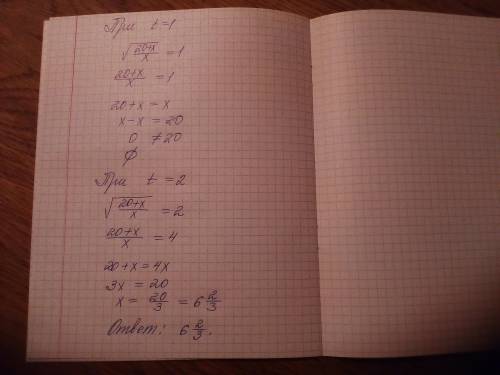 При t=1
√(20+x)/x = 1
(20+x)/x = 1
20+x = x
x-x = 20
0 ≠ 20
∅
При t = 2
√(20+x)/x = 2
(20+x)/x = 4
20+x = 4x
3x = 20
x = 20/3 = 6 2/3
Ответ: 6 2/3.